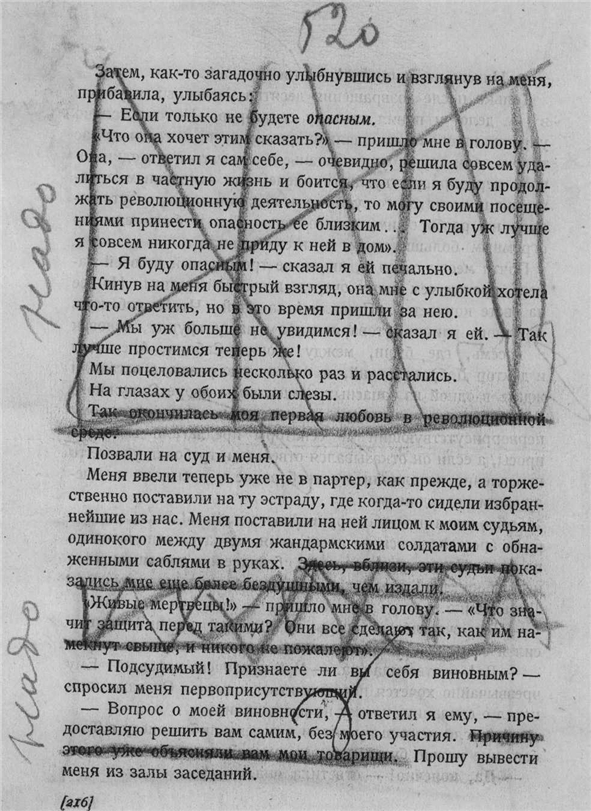 520
Затем, как-то загадочно улыбнувшись и взглянув на меня,
прибавила, улыбаясь:
— Если только не будете опасным.
«Что она хочет этим сказать?» — пришло мне в голову. —
Она, — ответил я сам себе, — очевидно, решила совсем уда-
литься в частную жизнь и боится, что если я буду продол-
жать революционную деятельность, то могу своими посеще-
ниями принести опасность ее близким... Тогда уж лучше
я совсем никогда не приду к ней в дом».
— Я буду опасным! — сказал я ей печально.
Кинув на меня быстрый взгляд, она мне с улыбкой хотела
что-то ответить, но в это время пришли за нею.
— Мы уж больше не увидимся! — сказал я ей. — Так
лучше простимся теперь же!
Мы поцеловались несколько раз и расстались.
На глазах у обоих были слезы.
Так окончилась моя первая любовь в революционной
среде.
надо
Позвали на суд и меня.
Меня ввели теперь уже не в партер, как прежде, а торже-
ственно поставили на ту эстраду, где когда-то сидели избран-
нейшие из нас. Меня поставили на ней лицом к моим судьям,
одинокого между двумя жандармскими солдатами с обна-
женными саблями в руках. Здесь, вблизи, эти судьи пока-
зались мне еще более бездушными, чем издали.
«Живые мертвецы!» — пришло мне в голову. — «Что зна-
чит защита перед такими? Они все сделают так, как им на-
мекнут свыше, и никого не пожалеют».
надо
— Подсудимый! Признаете ли вы себя виновным? —
спросил меня первоприсутствующий.
— Вопрос о моей виновности, — ответил я ему, — пре-
доставляю решить вам самим, без моего участия. Причину
этого уже объясняли вам мои товарищи. Прошу вывести
меня из залы заседаний.
[216]